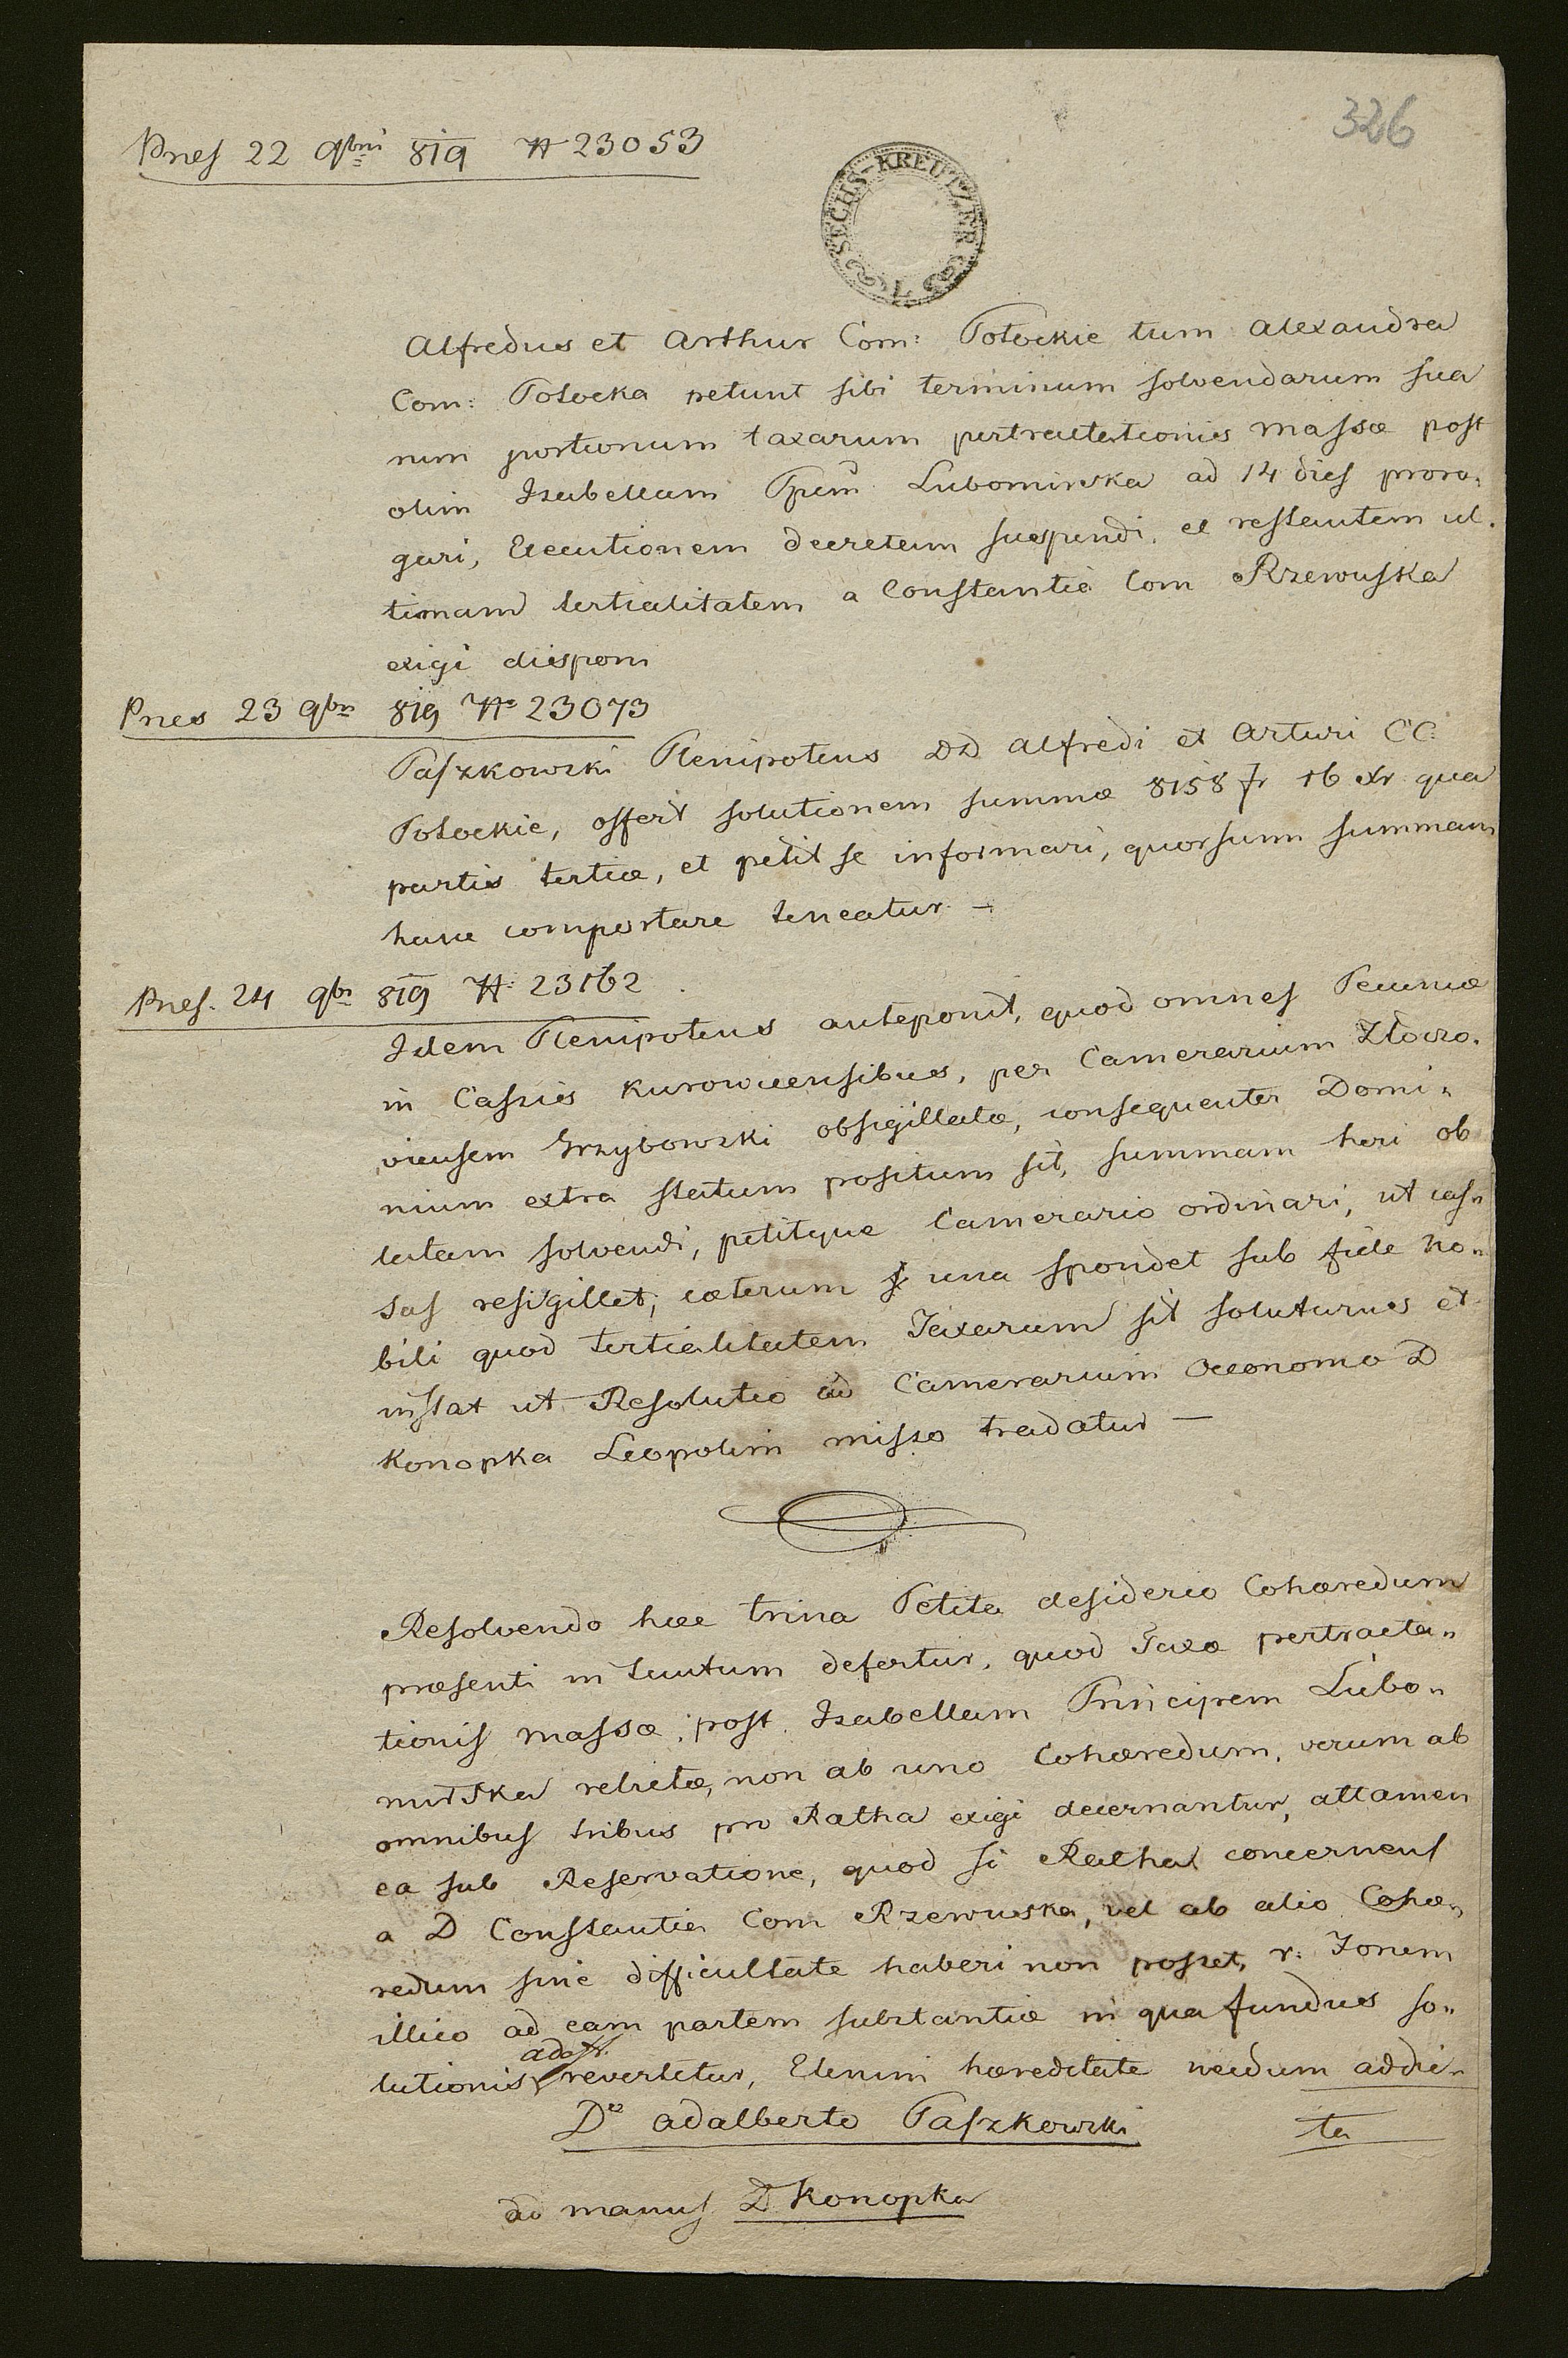 326
Pnes 22 9bris 819 N 23053
SECHS-KREUTZER
Alfredus et Arthur Com: Potockie tum Alexandra
Com: Potocka petunt sibi terminum solvendarum sua
rum portionum taxarum pertractationis massæ post
olim Isabellam Ppem Lubomirska ad 14 dies proro„
gari, Executionem decretam suspendi, et restantem ul„
timam tertialitatem a Constantia Com Rzewuska
exigi disponi
Pnes 23 9bris 819 No 23073
Paszkowski Plenipotens DD Alfredi et Arturi CC:
Potockie, offert solutionem summæ 8158 fr 16 xr qua
partis tertiæ, et petit se informari, quorsum summam
hanc comportare teneatur —
Pnes. 24 9bris 819 N: 23162
Idem Plenipotens anteponit, quod omnes Pecuniæ
in Cassis Kurowicensibus, per Camerarium Złoczo„
viensem Grzybowski obsigillatæ, consequenter Domi„
nium extra statum positum sit, summam heri ob
latam solvendi, petitque Camerario ordinari, ut cas„
sas resigillet, cæterum una spondet sub fide no„
bili quod tertialitatem Taxarum sit soluturus et
instat ut Resolutio ad Camerarium Oeconomo D
Konopka Leopolim misso tradatur —
Resolvendo hæc trina Petita desiderio Cohæredum
præsenti in tantum defertur, quod Taxæ pertracta„
tionis massæ, post Isabellam Principem Lubo„
mirska relictæ, non ab uno Cohæredum, verum ab
omnibus tribus pro Ratha exigi decernantur, attamen
ea sub Reservatione, quod si Ratha concernens
a D Constantia Com Rzewuska, vel ab alio Cohæ„
redum sine difficultate haberi non posset, r: Ionem
illico ad eam partem substantiæ in qua fundus so„
lutionis adest revertetur, Etenim hæreditate necdum addi„
ta
Do Adalberto Paszkowski
ad manus D Konopka